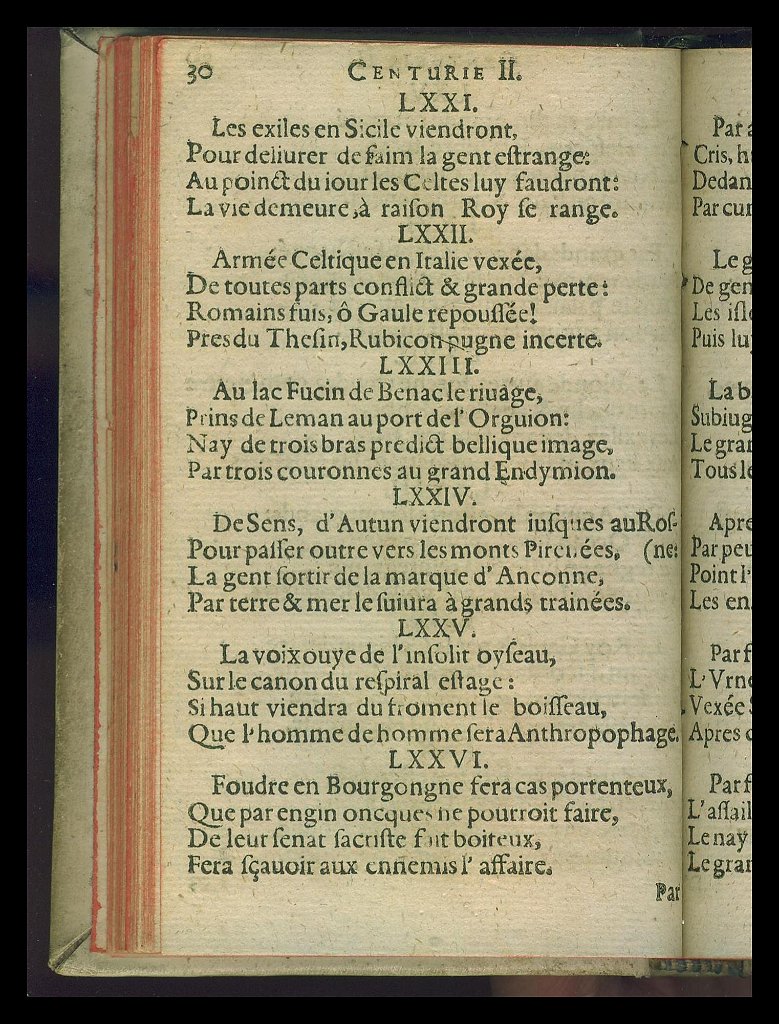 30 CENTURIE II.
LXXI.
Les exiles en Sicile viendront,
Pour deliurer de faim la gent eſtrange:
Au poinct du iour les Celtes luy faudront:
La vie demeure, à raiſon Roy ſe range.
LXXII.
Armée Celtique en Italie vexée,
De toutes parts conflict & grande perte:
Romains fuis, ô Gaule repouſſée!
Pres du Theſin, Rubicon pugne incerte.
LXXIII.
Au lac Fucin de Benac le riuage,
Prins de Leman au port de l'Orguion:
Nay de trois bras predict bellique image,
Par trois couronnes au grand Endymion.
LXXIV.
De Sens, d'Autun viendront iuſques au Roſ-
Pour paſſer outre vers les monts Pirenées, (ne:
La gent ſortir de la marque d'Anconne,
Par terre & mer le ſuiura à grands trainées.
LXXV.
La voix ouye de l'inſolit oyſeau,
Sur le canon du reſpiral eſtage:
Si haut viendra du froment le boiſſeau,
Que l'homme de homme ſera Anthropophage.
LXXVI.
Foudre en Bourgongne fera cas portenteux,
Que par engin oncques ne pourroit faire,
De leur ſenat ſacriſte fait boiteux,
Fera ſçauoir aux ennemis l'affaire.
Par
Par a
Cris, h
Dedan
Par cur
Le g
De gen
Les iſle
Puis luy
La b
Subiug
Le gran
Tous le
Apre
Par peu
Point l'
Les en
Par f
L'Vrne
Vexée
Apres
Par f
L'aſſail
Le nay
Le gran